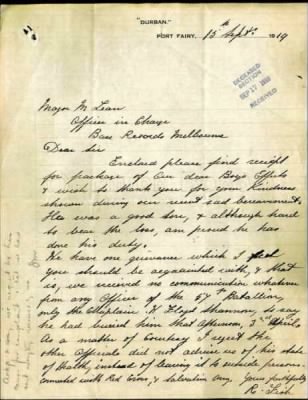 "DURBAN."
PORT FAIRY, 15th Septr. 1919
DECEASED
SECTION
SEP 17 1919
RECEIVED
Major M Lean
Officer in Charge
Base Records Melbourne
Dear Sir
Enclosed please find receipt
for package of Our dear Boys Effects
& wish to thank you for your Kindness
shown during our recent sad bereavement.
He was a good son, & although hard
to bear the loss, am proud he has
done his duty.
We have one grievance which I feel
you should be acquainted with, & that
is, we received no communication whatever
from any Officer of the 67 Batallion,
only the Chaplain, W Floyd Shannon, to say
he had buried him that afternoon, 3rd April
As a matter of Courtesy I regret the
other Officials did not advise us of his state
of Health, instead of leaving it to outside persons
connected with Red Cross, & Salvation Army. Yours faithfully
R. Fish